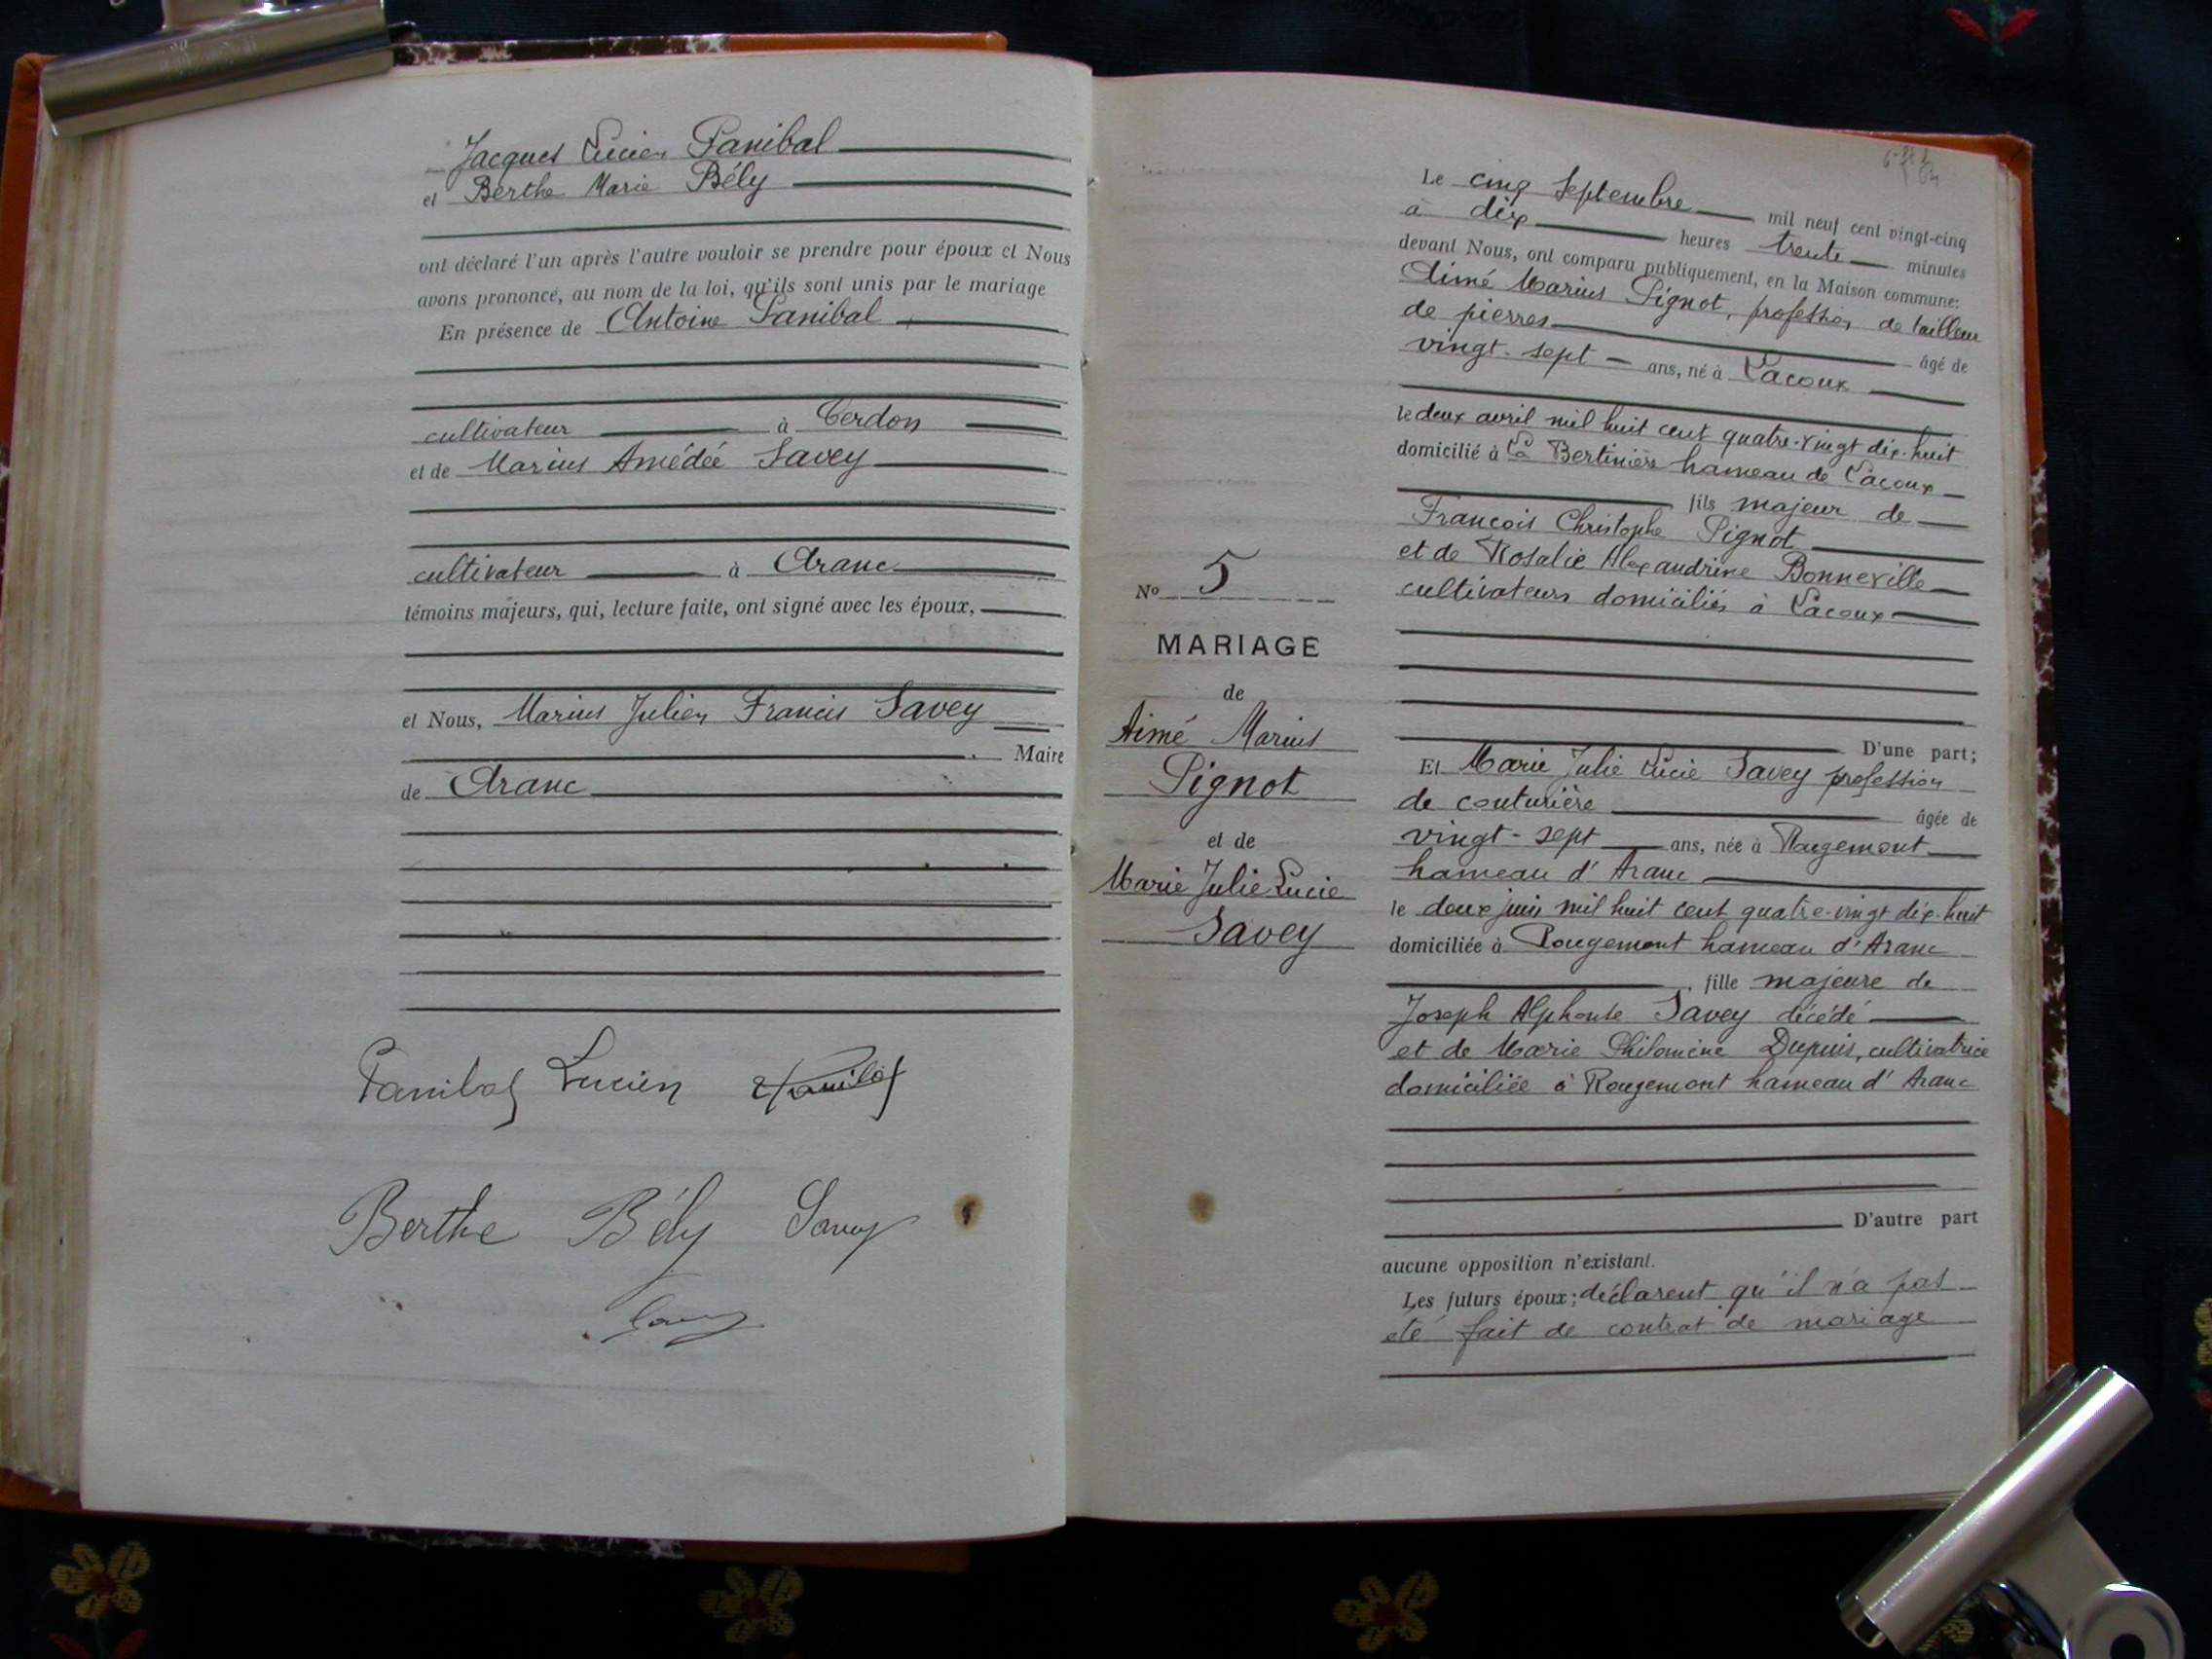 Jacques Lucien Panibal
et Berthe Marie Bély
ont déclaré l'un après l'autre vouloir se prendre pour époux et Nous
avons prononcé, au nom de la loi, qu'ils sont unis par le mariage
En présence de Antoine Panibal
cultivateur à Cerdon
et de Marius Amédée Savey
cultivateur à Aranc
témoins majeurs, qui, lecture faite, ont signé avec les époux,
et Nous, Marius Julien Francis Savey
Maire
de Aranc
Panibal Lucien Panibal
Berthe Bély Savey
Savey
Le cinq Septembre mil neuf cent vingt-cinq
à dix heures trente minutes
devant Nous, ont comparu publiquement, en la Maison commune:
Aimé Marius Pignot, profession de tailleur
de pierres âgé de
vingt-sept ans, né à Lacoux
le deux avril mil huit cent quatre-vingt dix-huit
domicilié à La Bertinière hameau de Lacoux
fils majeur de
François Christophe Pignot
et de Rosalie Alexandrine Bonneville
cultivateurs domiciliés à Lacoux
D'une part;
Et Marie Julie Lucie Savey profession
de couturière âgée de
vingt-sept ans, née à Rougemont
hameau d'Aranc
le deux juin mil huit cent quatre-vingt dix-huit
domiciliée à Rougemont hameau d'Aranc
, fille majeure de
Joseph Alphonse Savey décédé
et de Marie Philomène Dupuis, cultivatrice
domiciliée à Rougemont hameau d'Aranc
D'autre part
aucune opposition n'existant.
Les futurs époux; déclarent qu'il n'a pas
été fait de contrat de mariage
No 5
MARIAGE
de
Aimé Marius
Pignot
et de
Marie Julie Lucie
Savey